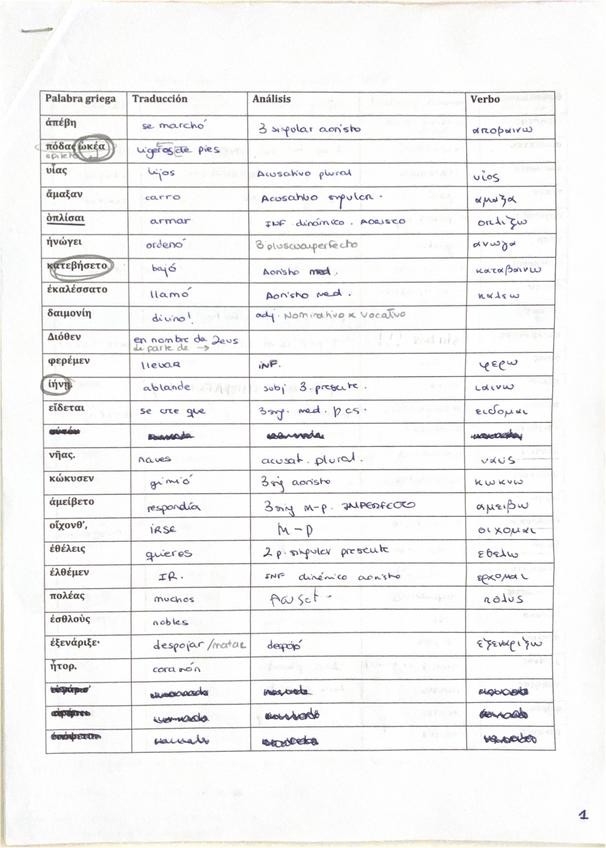 Palabra griega Traducción Análisis Verbo
ἀπέβη se marchó 3 singular aoristo αποβαινω
πόδας ὠκέα ligeros de pies
epíteto
υἷας hijos Acusativo plural υἱος
ἄμαξαν carro Acusativo singular. αμαξα
ὁπλίσαι armar INF dinámico. AORISTO οπλιζω
ἠνώγει ordenó 3 pluscuamperfecto ανωγα
κατεβήσετο bajó Aoristo med. καταβαινω
ἐκαλέσσατο llamó Aoristo Med. καλεω
δαιμονίη divino! adj. Nominativo x vocativo
Διόθεν en nombre de Zeus
de parte de →
φερέμεν llevar INF. φερω
ἰήνῃ ablande subj 3. presente. ιαινω
εἴδεται se cree que 3 sing. med. pes. ειδομαι
νῆας. naves acusat. plural. ναυς
κώκυσεν gimió 3 sing aoristo κωκυω
ἀμείβετο respondía 3 sing M-p. IMPERFECTO αμειβω
οἴχονθ', irse M-p οιχομαι
ἐθέλεις quieres 2 p. singular presente εθελω
ἐλθέμεν IR. INF dinámico aoristo ερχομαι
πολέας muchos Acusat. πολυς
ἐσθλοὺς nobles
ἐξενάριξε· despojar/matar despojó εξεναριζω
ἦτορ. corazón
1